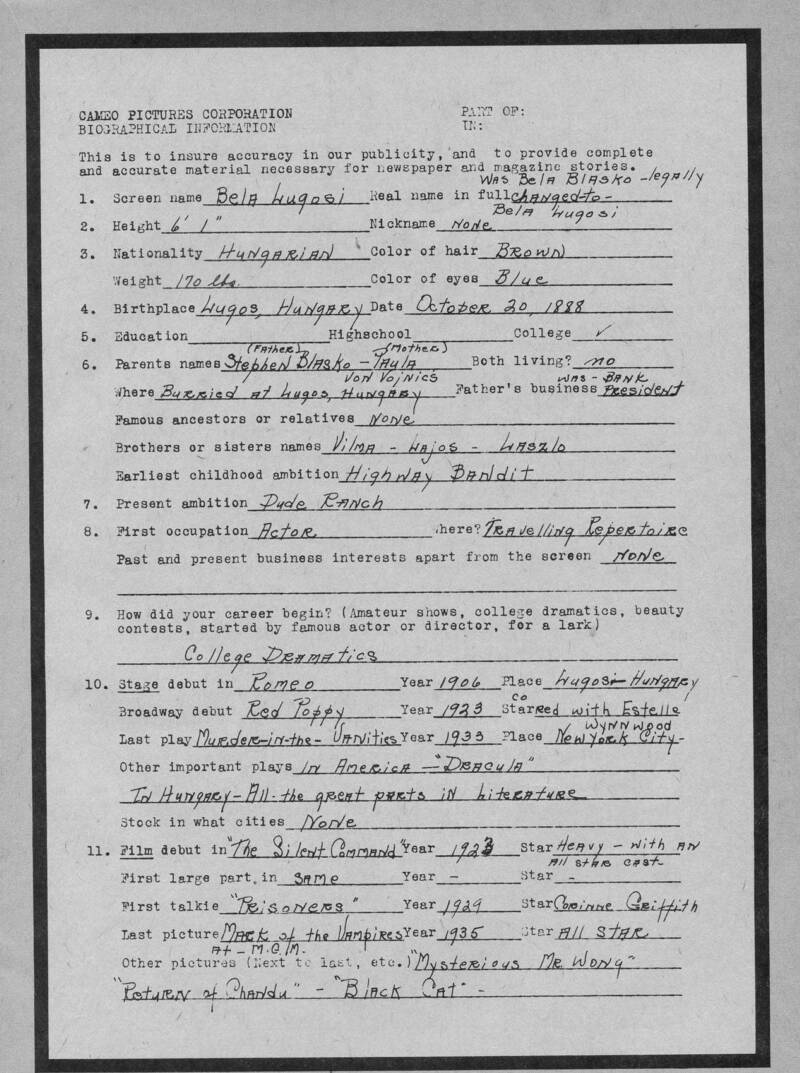 CAMEO PICTURES CORPORATION PART OF:
BIOGRAPHICAL INFORMATION IN:
This is to insure accuracy in our publicity, and to provide complete
and accurate material necessary for newspaper and magazine stories.
WAS BELA BLASKO - legally
1. Screen name Bela Lugosi Real name in full changed-to-
Bela Lugosi
2. Height 6' 1" Nickname none
3. Nationality HUNGARIAN Color of hair BROWN
Weight 170 lbs. Color of eyes Blue
4. Birthplace Lugos, HUNGARY Date October 20, 1888
5. Education Highschool College ✓
(FATHER) (Mother)
6. Parents names Stephen Blasko - Paula Both living? no
VON VOJNICS WAS - BANK
Where Burried at Lugos, HUNGARY Father's business PRESIDENT
Famous ancestors or relatives none
Brothers or sisters names Vilma - Lajos - Laszlo
Earliest childhood ambition Highway Bandit
7. Present ambition Dude Ranch
8. First occupation Actor here? Travelling Repertoire
Past and present business interests apart from the screen none
9. How did your career begin? (Amateur shows, college dramatics, beauty
contests, started by famous actor or director, for a lark)
College Dramatics
10. Stage debut in Romeo Year 1906 Place Lugos - Hungary
Co
Broadway debut Red Poppy Year 1923 Starred with Estelle
WYNNWOOD
Last play Murder-in-the-Vanities Year 1933 Place New York City-
Other important plays in America - "DRACULA"
In Hungary - All-the great parts in Literature
Stock in what cities None
11. Film debut in "The Silent Command" Year 1923 Star Heavy - with an
All star cast-
First large part in same Year - Star -
First talkie "Prisoners" Year 1929 Star Corinne Griffith
Last picture Mark of the Vampires Year 1935 Star All STAR
At - M.G.M.
Other pictures (Next to last, etc.) "Mysterious Mr Wong"
"Return of Chandu" - "Black Cat" -